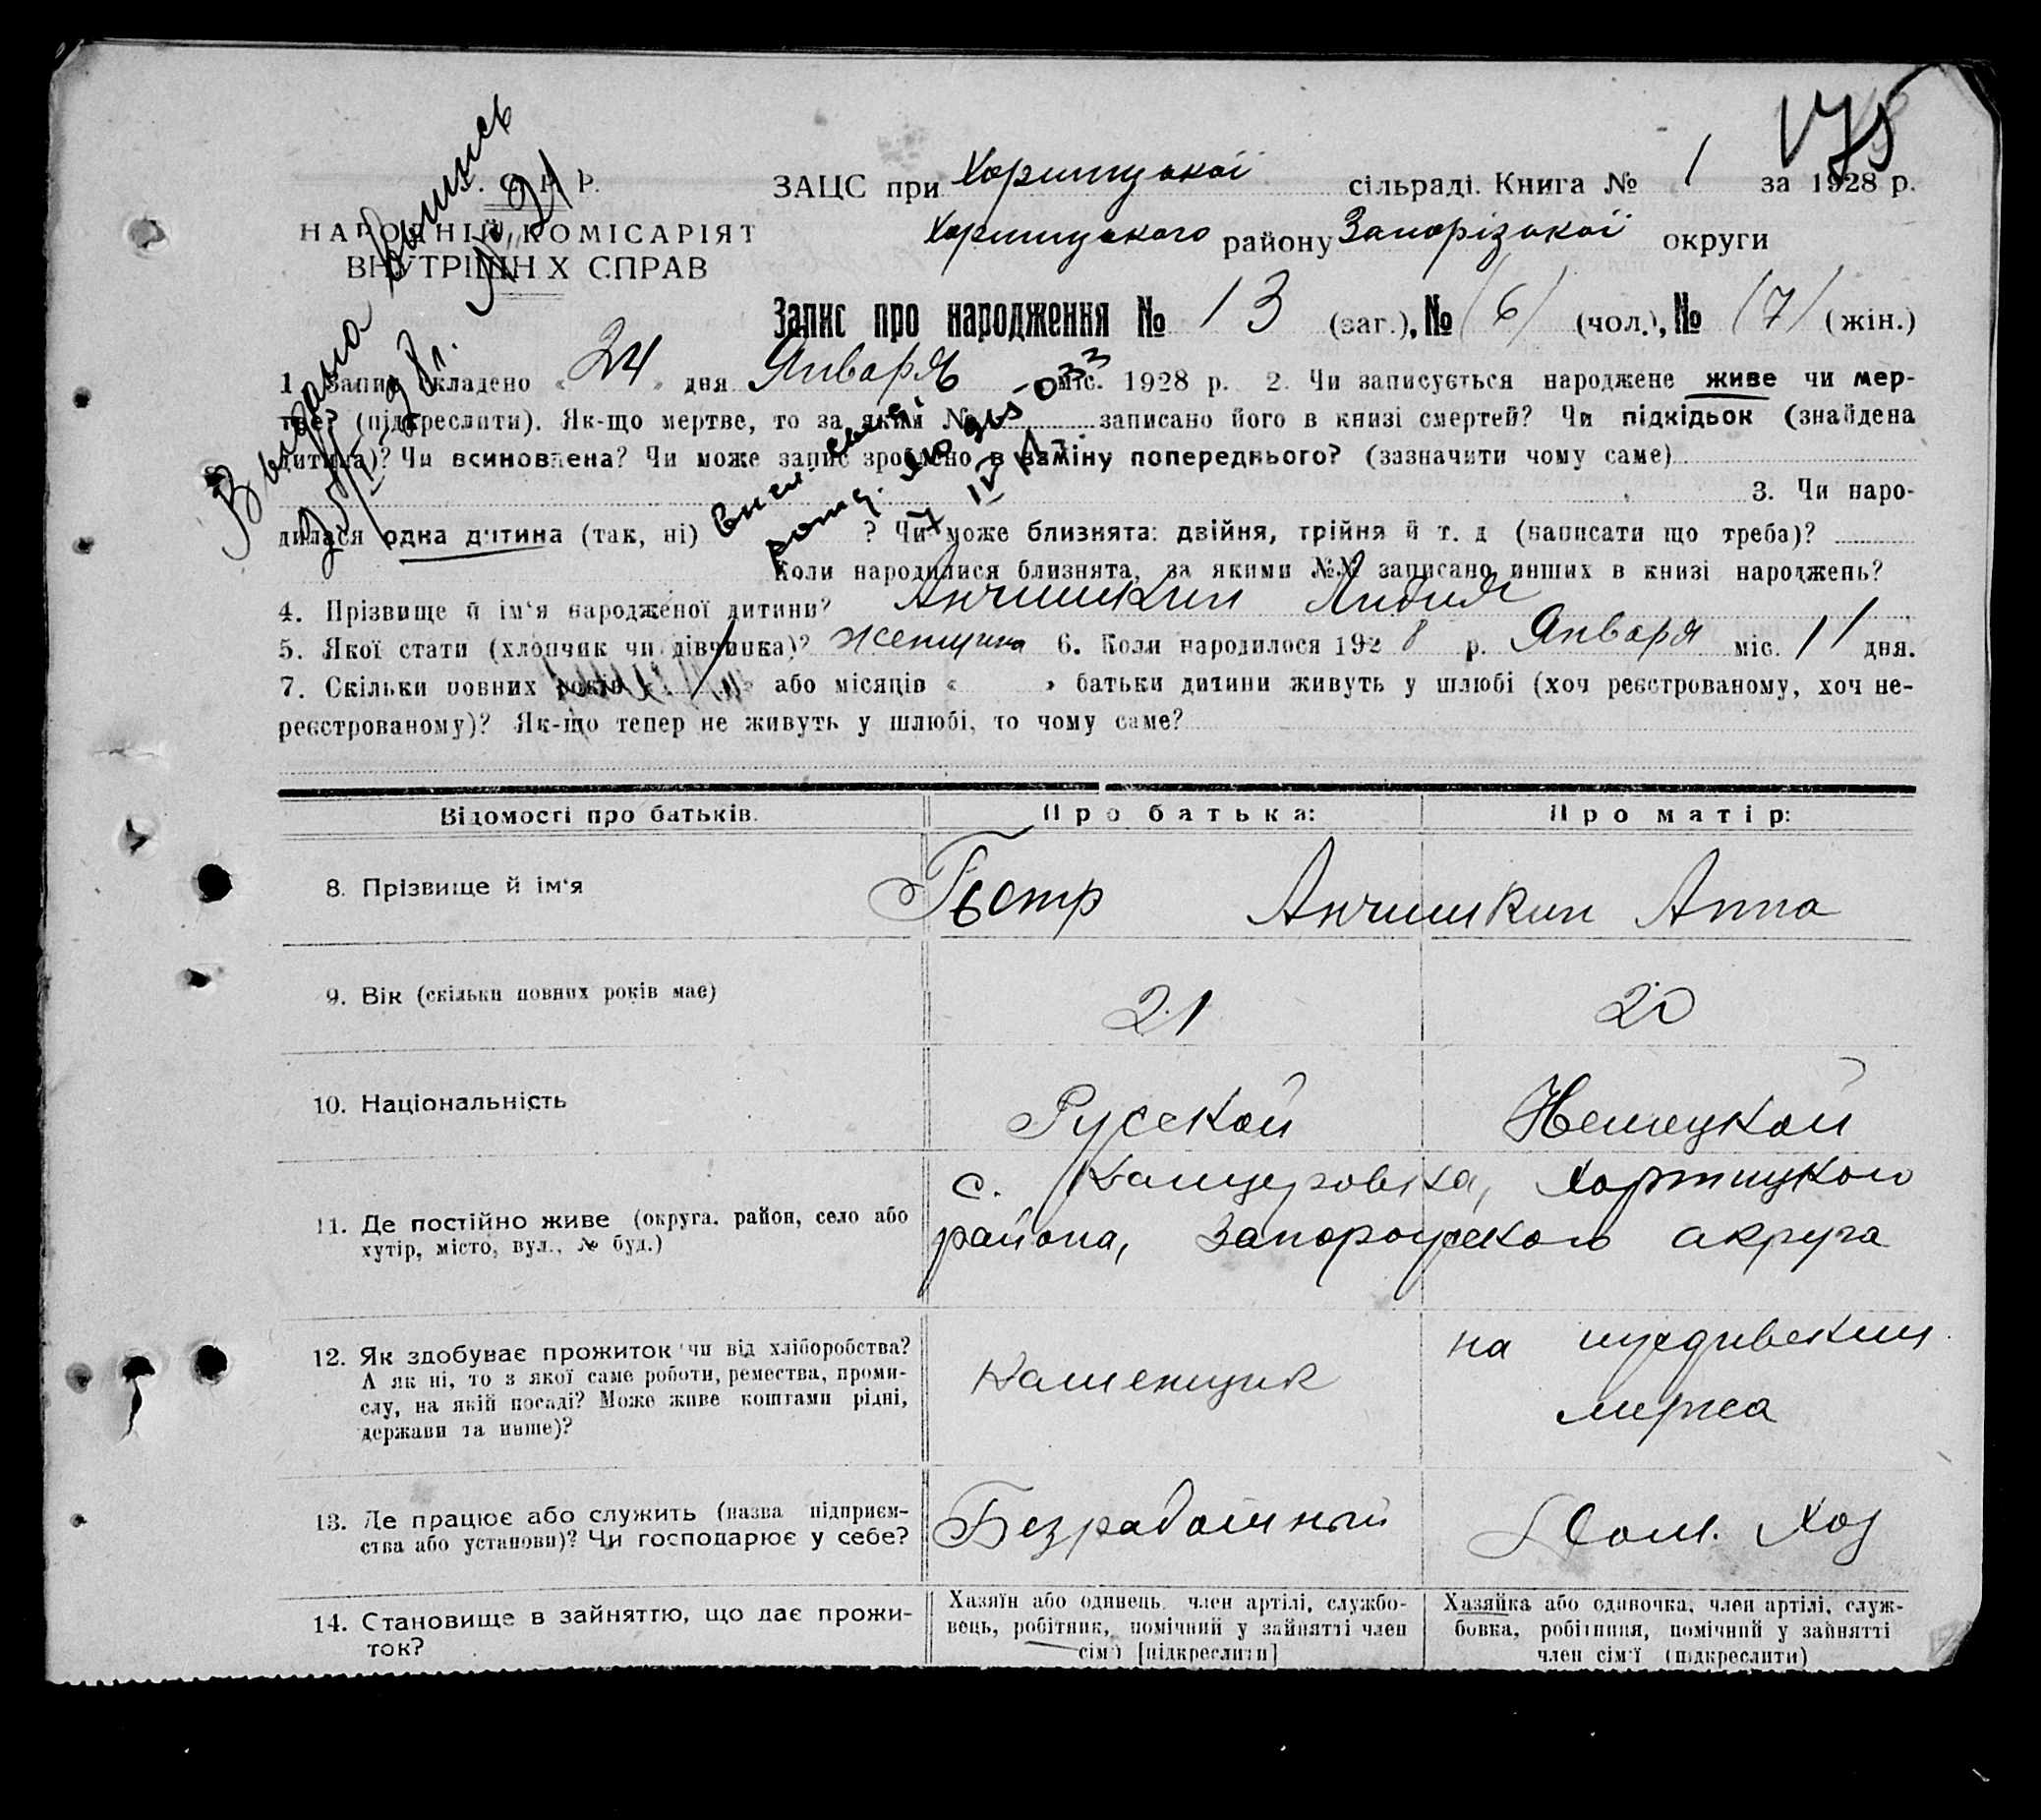 175
У. С. Р. Р.
НАРОДНІЙ КОМІСАРІЯТ
ВНУТРІШНІХ СПРАВ
ЗАЦС при Хортицької сільраді. Книга № 1 за 1928 р.
Хортицького району Запорізької округи
Запис про народження № 13 (заг.), № 6 (чол.), № 7 (жін.)
Видана выпись
№ 21
1. Запис складено « 24 » дня Января міс. 1928 р. 2. Чи записується народжене живе чи мер-
тве? (підкреслити). Як-що мертве, то за яким № записано його в книзі смертей? Чи підкідьок (знайдена
дитина)? Чи всиновлена? Чи може запис зроблено в заміну попереднього? (зазначити чому саме)
3. Чи наро-
дилася одна дитина (так, ні) ? Чи може близнята: двійня, трійня й т. д (написати що треба)?
Коли народилися близнята, за якими №№ записано инших в книзі народжень?
4. Прізвище й ім'я народженої дитини? Анчишкин Лидия
5. Якої стати (хлопчик чи дівчинка)? женщина 6. Коли народилося 1928 р. Января міс. 11 дня.
7. Скільки повних років « 1 » або місяців « » батьки дитини живуть у шлюбі (хоч реєстрованому, хоч не-
реєстрованому)? Як-що тепер не живуть у шлюбі, то чому саме?
Відомості про батьків. Про батька: Про матір:
8. Прізвище й ім'я Пьотр Анчишкин Анна
9. Вік (скільки повних років має) 21 20
10. Національність Русской Немецкой
11. Де постійно живе (округа, район, село або
хутір, місто, вул., № буд.)
с. Канцеровка, Хортицкого
района, Запорожского округа
12. Як здобуває прожиток чи від хліборобства?
А як ні, то з якої саме роботи, ремества, проми-
слу, на якій посаді? Може живе коштами рідні,
держави та инше)?
Каменщик
на иждивении
мужа
13. Де працює або служить (назва підприєм-
ства або установи)? Чи господарює у себе?
Безработный Дом. Хоз
14. Становище в зайняттю, що дає прожи-
ток?
Хазяїн або одинець, член артілі, службо-
вець, робітник, помічний у зайнятті член
сім'ї [підкреслити]
Хазяйка або одиночка, член артілі, служ-
бовка, робітниця, помічний у зайнятті
член сім'ї (підкреслити)